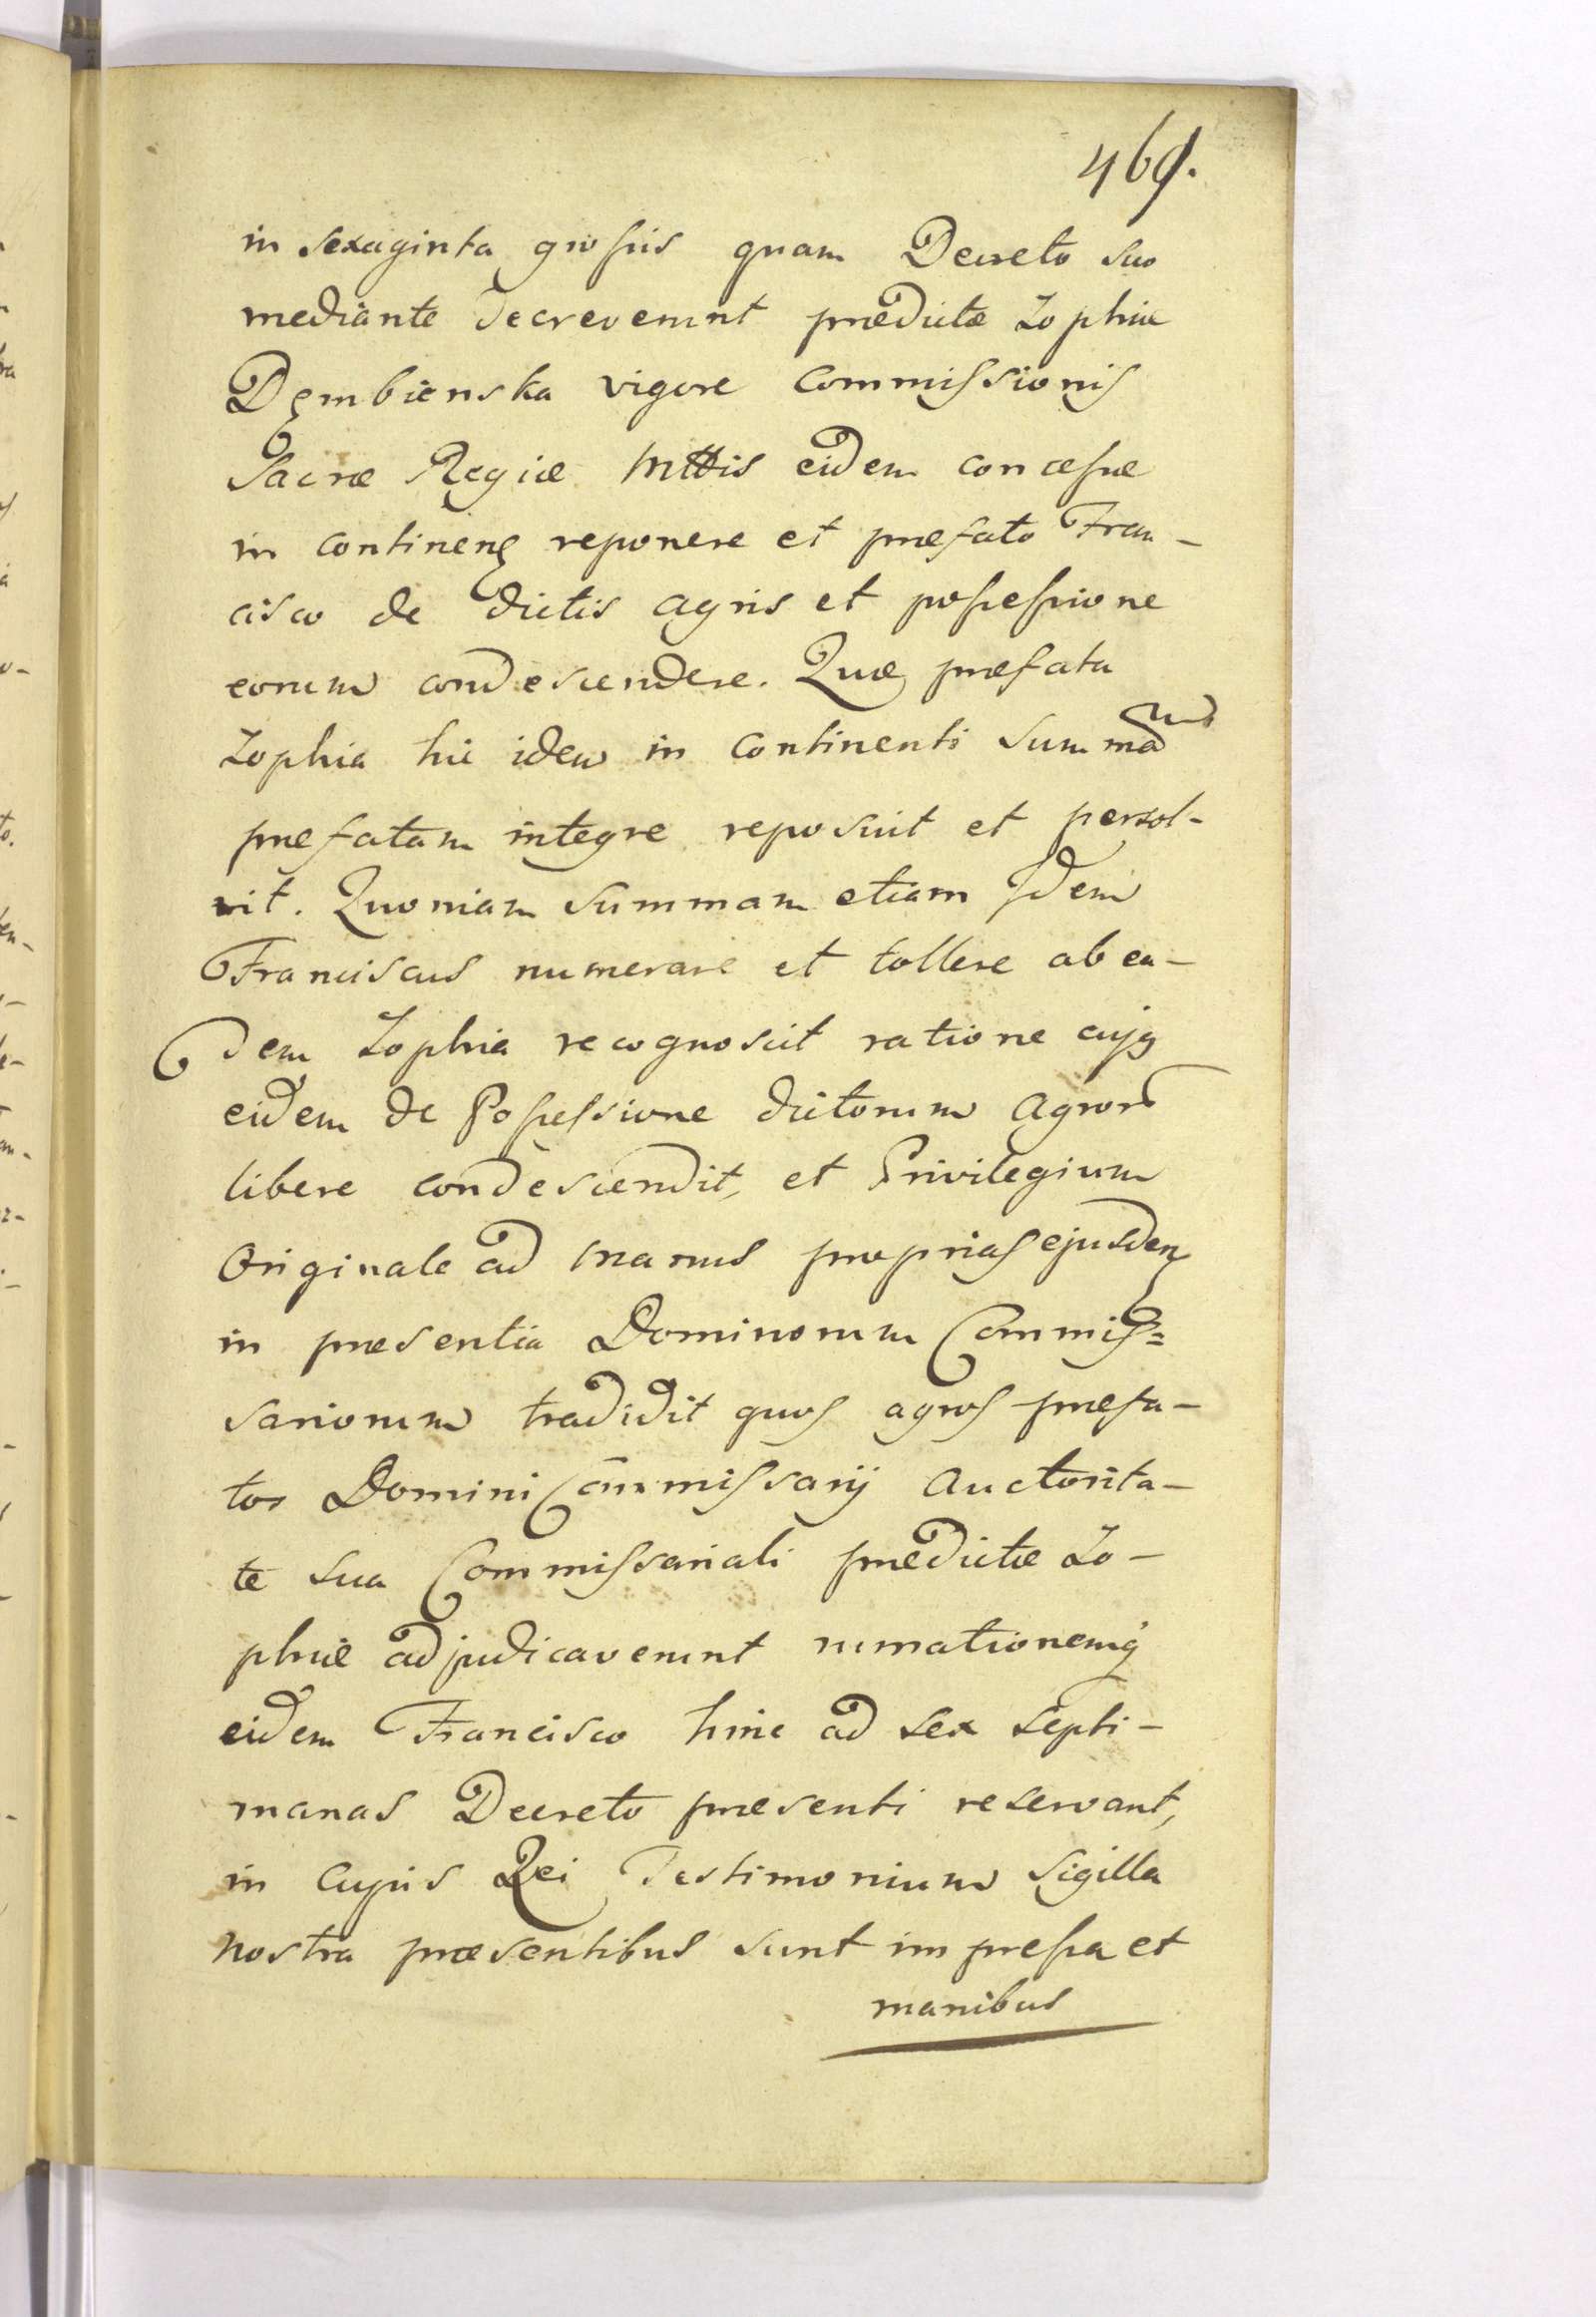 469.
in sexaginta grossis quam Decreto suo
mediante decreverunt prædictæ Zophiæ
Dembienska vigore Commissionis
Sacræ Regiæ Mttis eidem concessæ
in continenę reponere et præfato Fran-
cisco de dictis agris et possessione
eorum condescendere. Quæ præfata
Zophia hic idem in continenti summam
præfatam integre reposuit et persol-
vit. Quoniam summam etiam Idem
Franciscus numerare et tollere ab ea-
dem Zophia recognoscit ratione cujg
eidem de Possessione dictorum Agror
libere condescendit, et Privilegium
Originale ad manus proprias ejusdem
in præsentia Dominorum Commis=
sariorum tradidit quos agros præfa-
tos Domini Commissarij Auctorita-
te sua Commissariali prædictæ Zo-
phiæ adjudicaverunt rumationemq
eidem Francisco hinc ad sex septi-
manas Decreto præsenti reservant,
in Cujus Rei Testimonium Sigilla
nostra præsentibus sunt impressa et
manibus